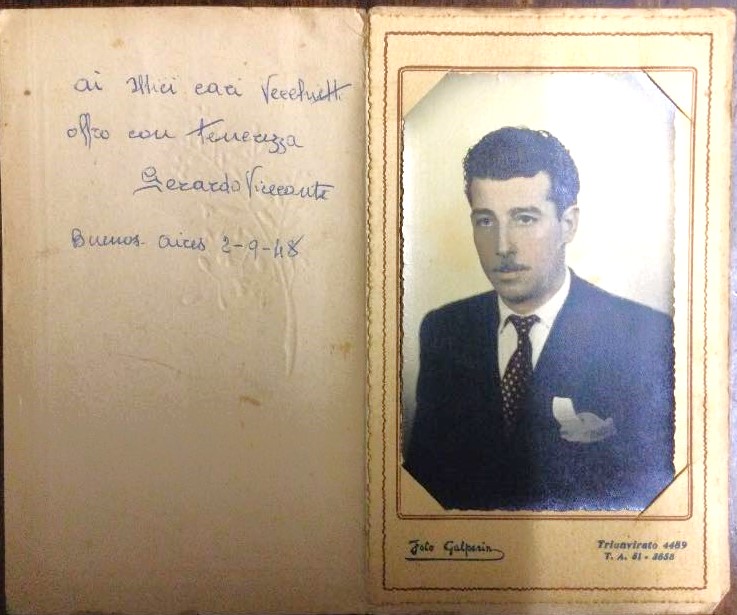 ai Miei cari Vecchietti
offro con tenerezza
Gerardo Viceconte
Buenos-Aires 2-9-48
Foto Galperin
Triunvirato 4489
T. A. 51 - 3658